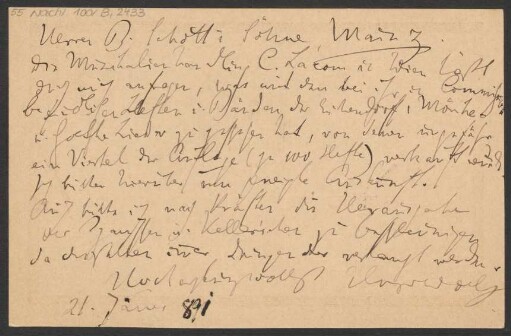 55 Nachl. 100/B, 2433
Herren B. Schott's Söhne, Mainz.
Die Musikalienhandlung C. Lacom in Wien läßt
durch mich anfragen, was mit den bei ihr in Commission
befindlichen Heften u. Bänden der Eichendorf-, Mörike-
u. Goethe Lieder zu geschehen hat, von denen ungefähr
ein Viertel der Auflage (je 100 Hefte) verkauft wurde.
Ich bitte hierüber um Auskunft.
Auch bitte ich nach Kräften die Herausgabe
der Spanischen u. Kellerschen zu beschleunigen
da dieselben immer verlangt werden.
Hochachtungsvollst Hugo Wolf
21. Jänner 891